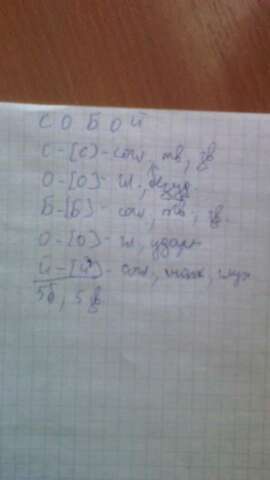 С О Б О Й
С-[С]-согл, тв, зв
О-[О]-гл, безуд.
Б-[Б]-согл, тв, зв.
О-[О]-гл, ударн
Й-[Й']-согл, мягк, глух
5б, 5 зв